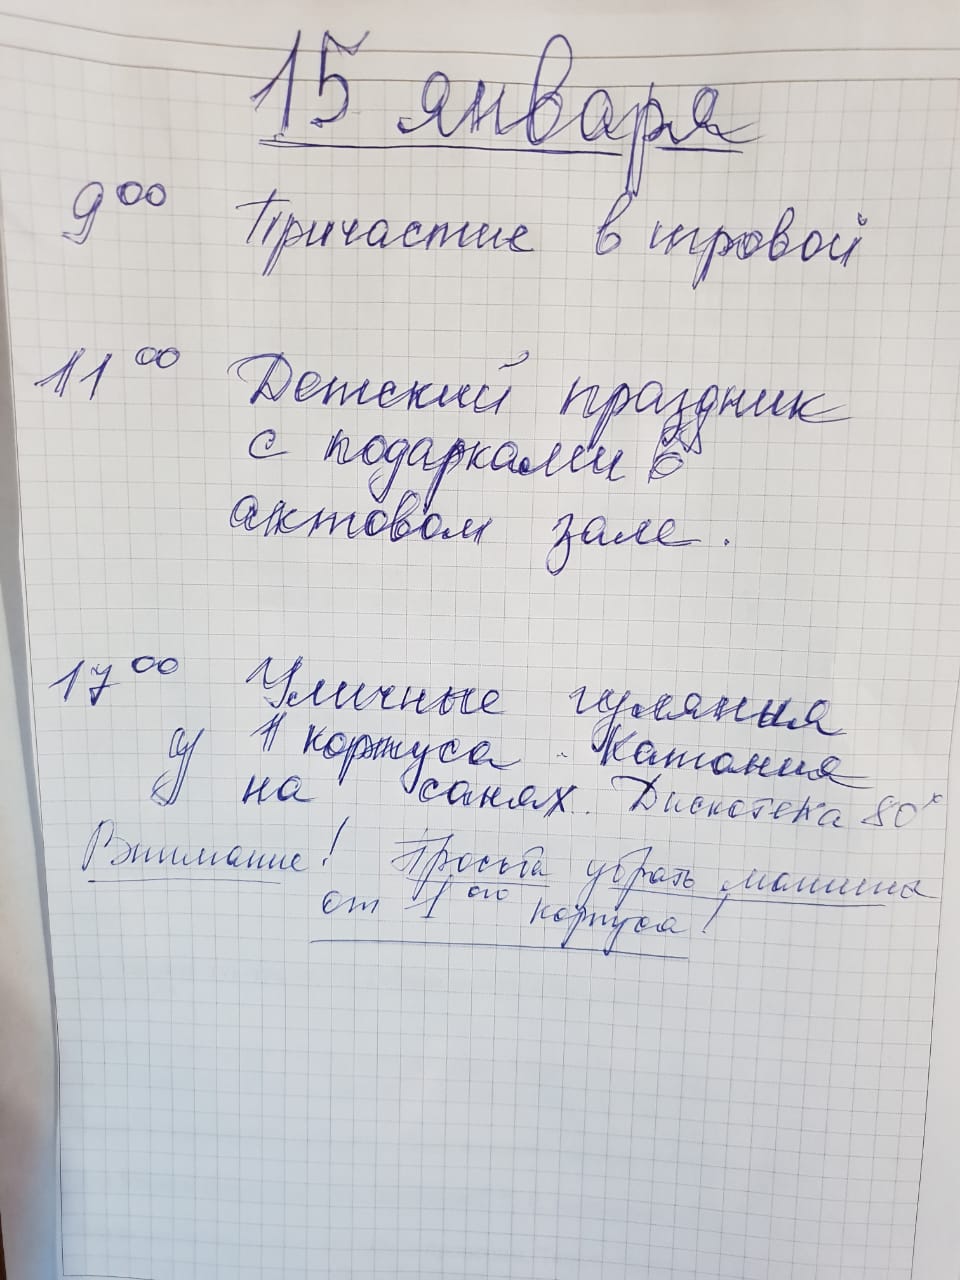 15 января
9⁰⁰ Причастие в игровой
11⁰⁰ Детский праздник
с подарками в
актовом зале.
17⁰⁰ Уличные гуляния
у 1 корпуса. Катания
на санях. Дискотека 80ˣ
Внимание! Просьба убрать машины
от 1ᵒᵍᵒ корпуса!